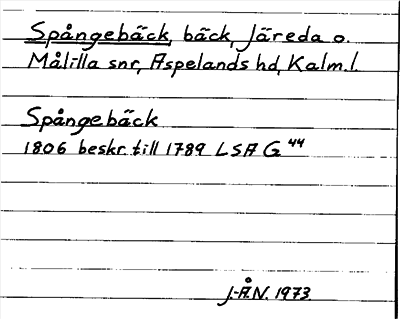 Spångebäck, bäck, Järeda o.
Målilla snr, Aspelands hd, Kalm.l.
Spångebäck
1806 beskr. till 1789 LSA G 44
J.-Å.N. 1973